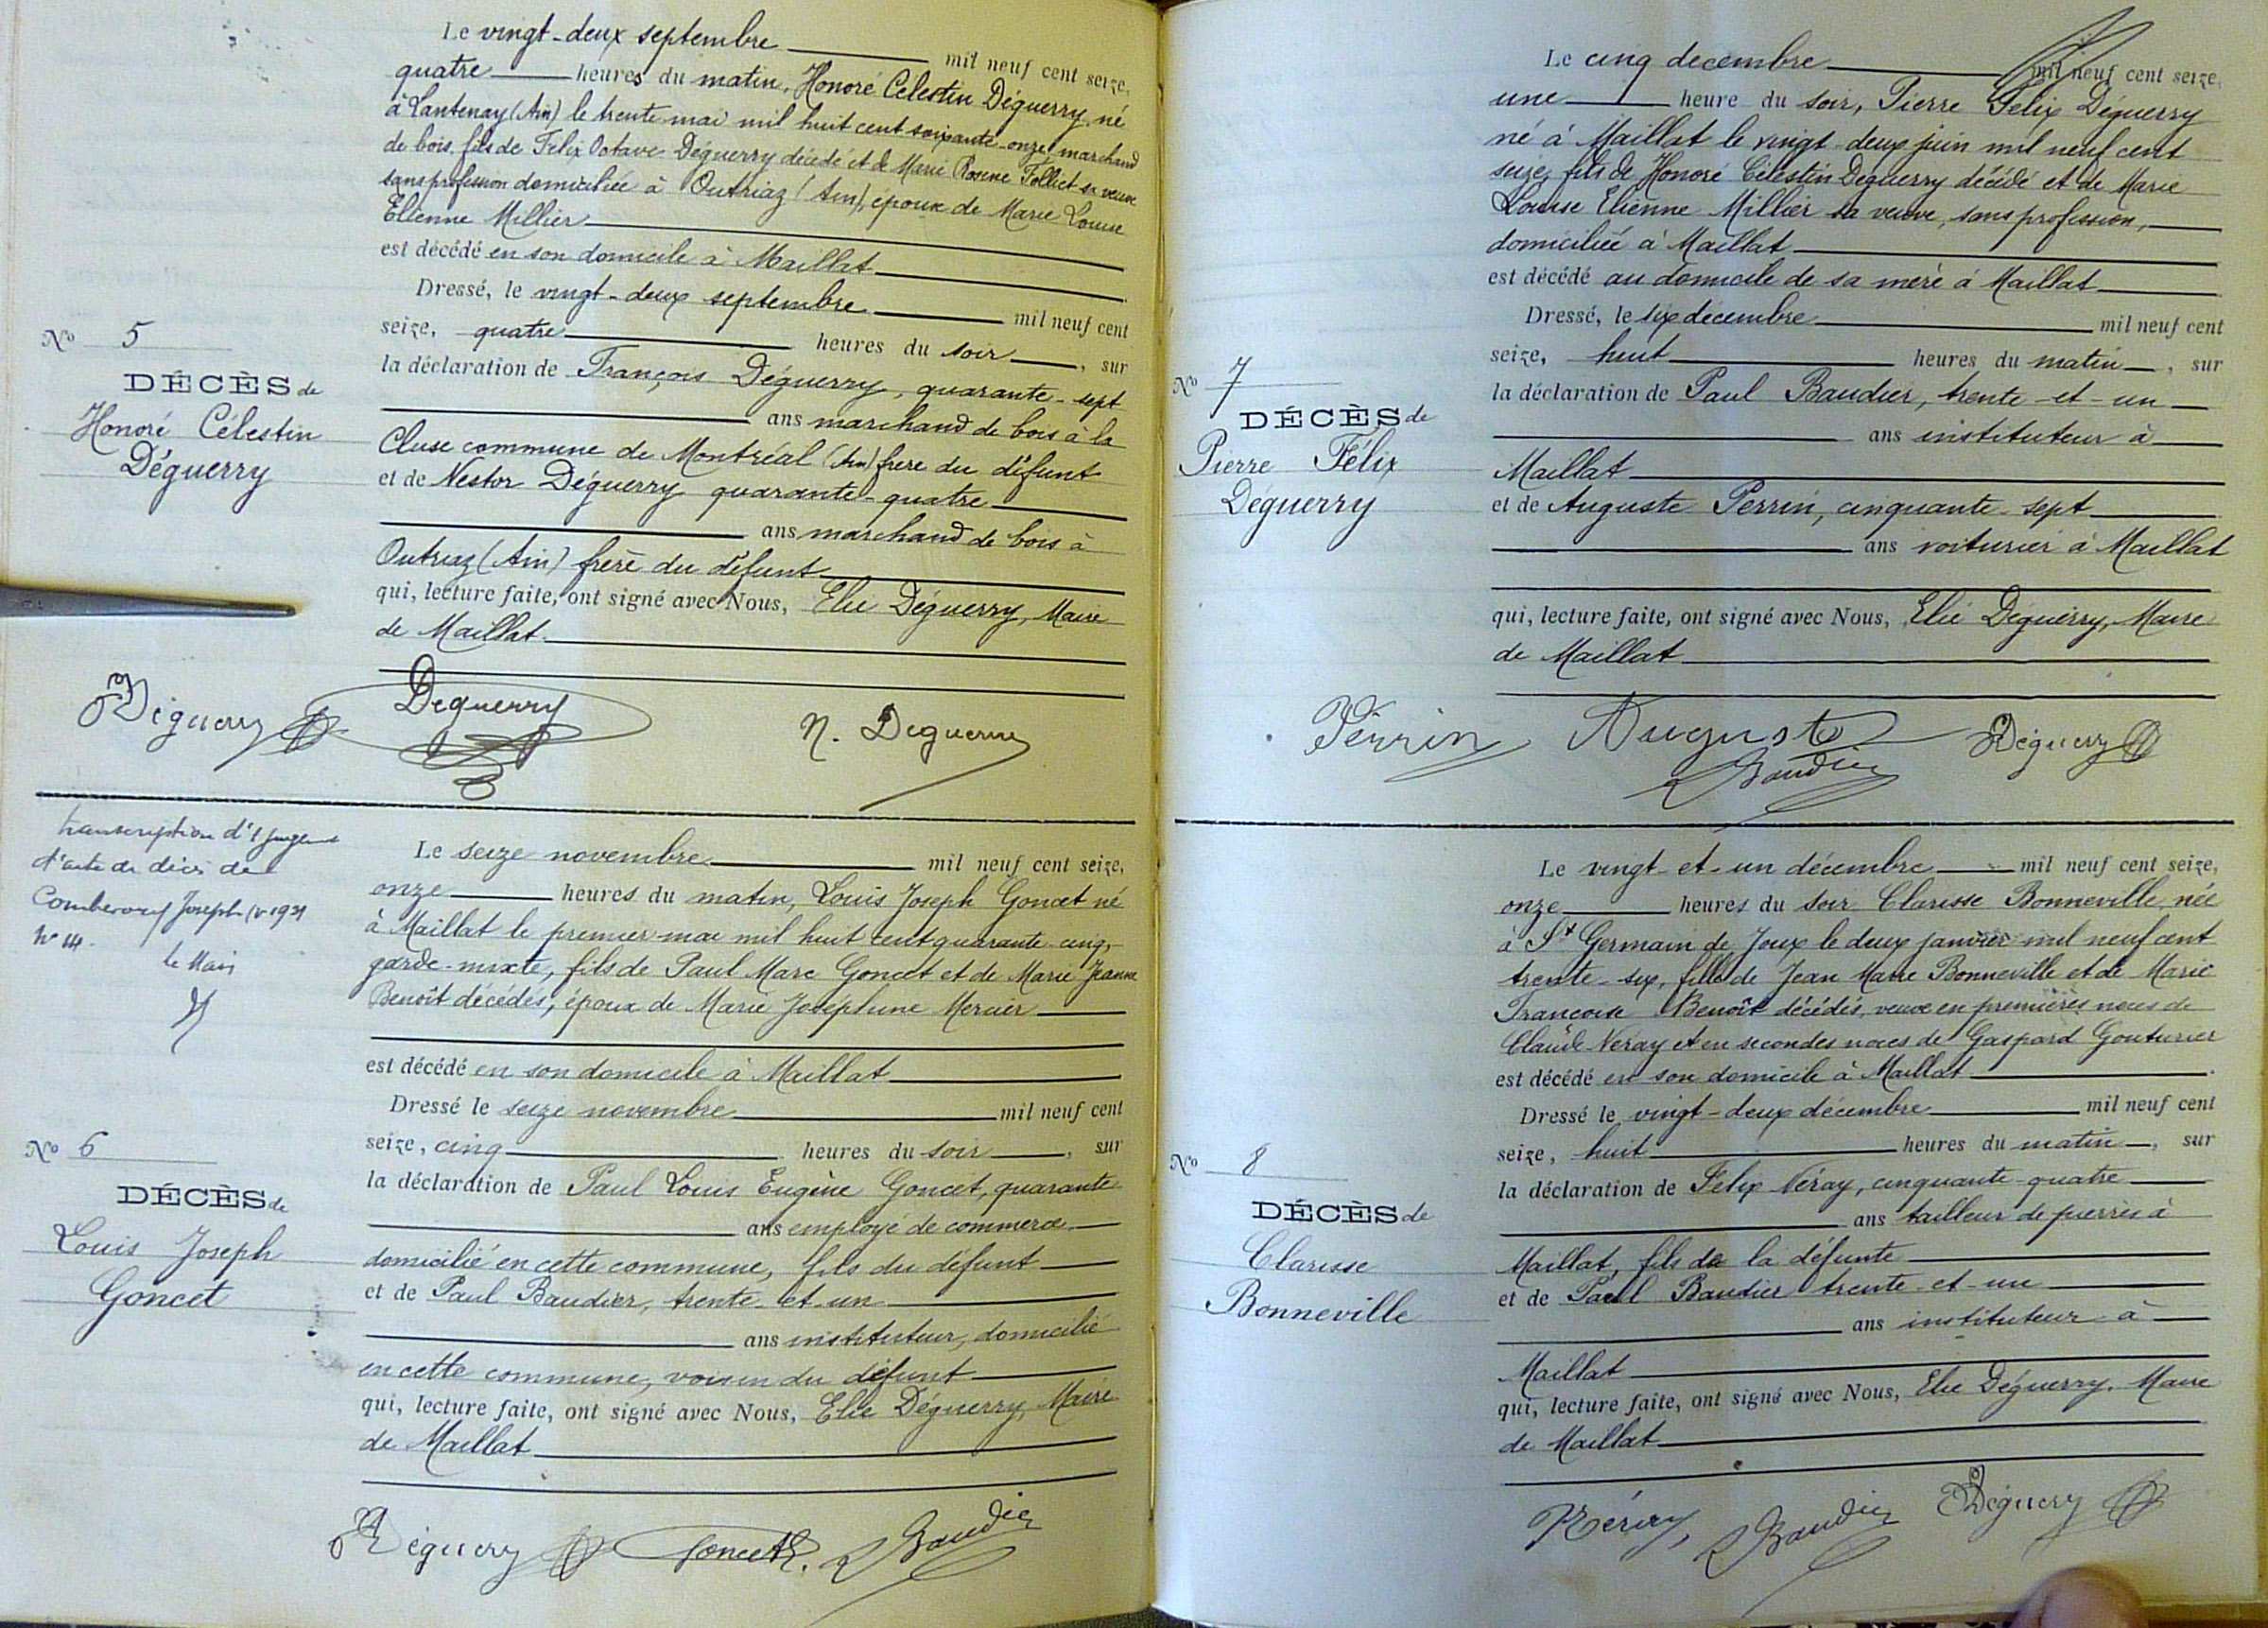 Le vingt-deux septembre mil neuf cent seize,
quatre heures du matin, Honoré Célestin Déguerry, né
à Lantenay (Ain) le trente mai mil huit cent soixante-onze, marchand
de bois, fils de Felix Octave Déguerry décédé et de Marie Rosine Folliet sa veuve
sans profession domiciliée à Outriaz (Ain), époux de Marie Louise
Etienne Millier
est décédé en son domicile à Maillat
Dressé, le vingt-deux septembre mil neuf cent
seize, quatre heures du soir, sur
la déclaration de François Déguerry, quarante-sept
ans marchand de bois à la
Cluse commune de Montréal (Ain) frère du défunt
et de Nestor Déguerry quarante-quatre
ans marchand de bois à
Outriaz (Ain) frère du défunt
qui, lecture faite, ont signé avec Nous, Elie Déguerry, Maire
de Maillat
No 5
DÉCÈS de
Honoré Célestin
Déguerry
Déguerry Deguerry N. Deguerry
transcription d'1 jugem
d'acte de décès de
Joseph 1921
No 14.
le Maire
Le seize novembre mil neuf cent seize,
onze heures du matin, Louis Joseph Goncet né
à Maillat le premier mai mil huit cent quarante-cinq,
garde-mixte, fils de Paul Marc Goncet et de Marie Jeanne
Benoît décédés, époux de Marie Joséphine Mercier
est décédé en son domicile à Maillat
Dressé le seize novembre mil neuf cent
seize, cinq heures du soir, sur
la déclaration de Paul Louis Eugène Goncet, quarante
ans employé de commerce
domicilié en cette commune, fils du défunt
et de Paul Baudier, trente-et-un
ans instituteur, domicilié
en cette commune, voisin du défunt
qui, lecture faite, ont signé avec Nous, Elie Déguerry, Maire
de Maillat
No 6
DÉCÈS de
Louis Joseph
Goncet
Déguerry Goncet Baudier
Le cinq decembre mil neuf cent seize,
une heure du soir, Pierre Félix Déguerry
né à Maillat le vingt-deux juin mil neuf cent
seize, fils de Honoré Célestin Déguerry décédé et de Marie
Louise Etienne Millier sa veuve, sans profession,
domiciliée à Maillat
est décédé au domicile de sa mère à Maillat
Dressé, le six decembre mil neuf cent
seize, huit heures du matin, sur
la déclaration de Paul Baudier, trente-et-un
ans instituteur à
Maillat
et de Auguste Perrin, cinquante-sept
ans voiturier à Maillat
qui, lecture faite, ont signé avec Nous, Elie Déguerry, Maire
de Maillat
No 7
DÉCÈS de
Pierre Félix
Déguerry
Perrin Auguste Déguerry
Baudier
Le vingt-et-un décembre mil neuf cent seize,
onze heures du soir Clarisse Bonneville, née
à St Germain de Joux le deux janvier mil neuf cent
trente-six, fille de Jean Marie Bonneville et de Marie
Françoise Benoît décédés, veuve en premières noces de
Claude Néray et en secondes noces de Gaspard Gouturier
est décédé en son domicile à Maillat
Dressé le vingt-deux décembre mil neuf cent
seize, huit heures du matin, sur
la déclaration de Félix Néray, cinquante-quatre
ans tailleur de pierres à
Maillat, fils de la défunte
et de Paul Baudier trente-et-un
ans instituteur à
Maillat
qui, lecture faite, ont signé avec Nous, Elie Déguerry, Maire
de Maillat
No 8
DÉCÈS de
Clarisse
Bonneville
Néray, Baudier Déguerry